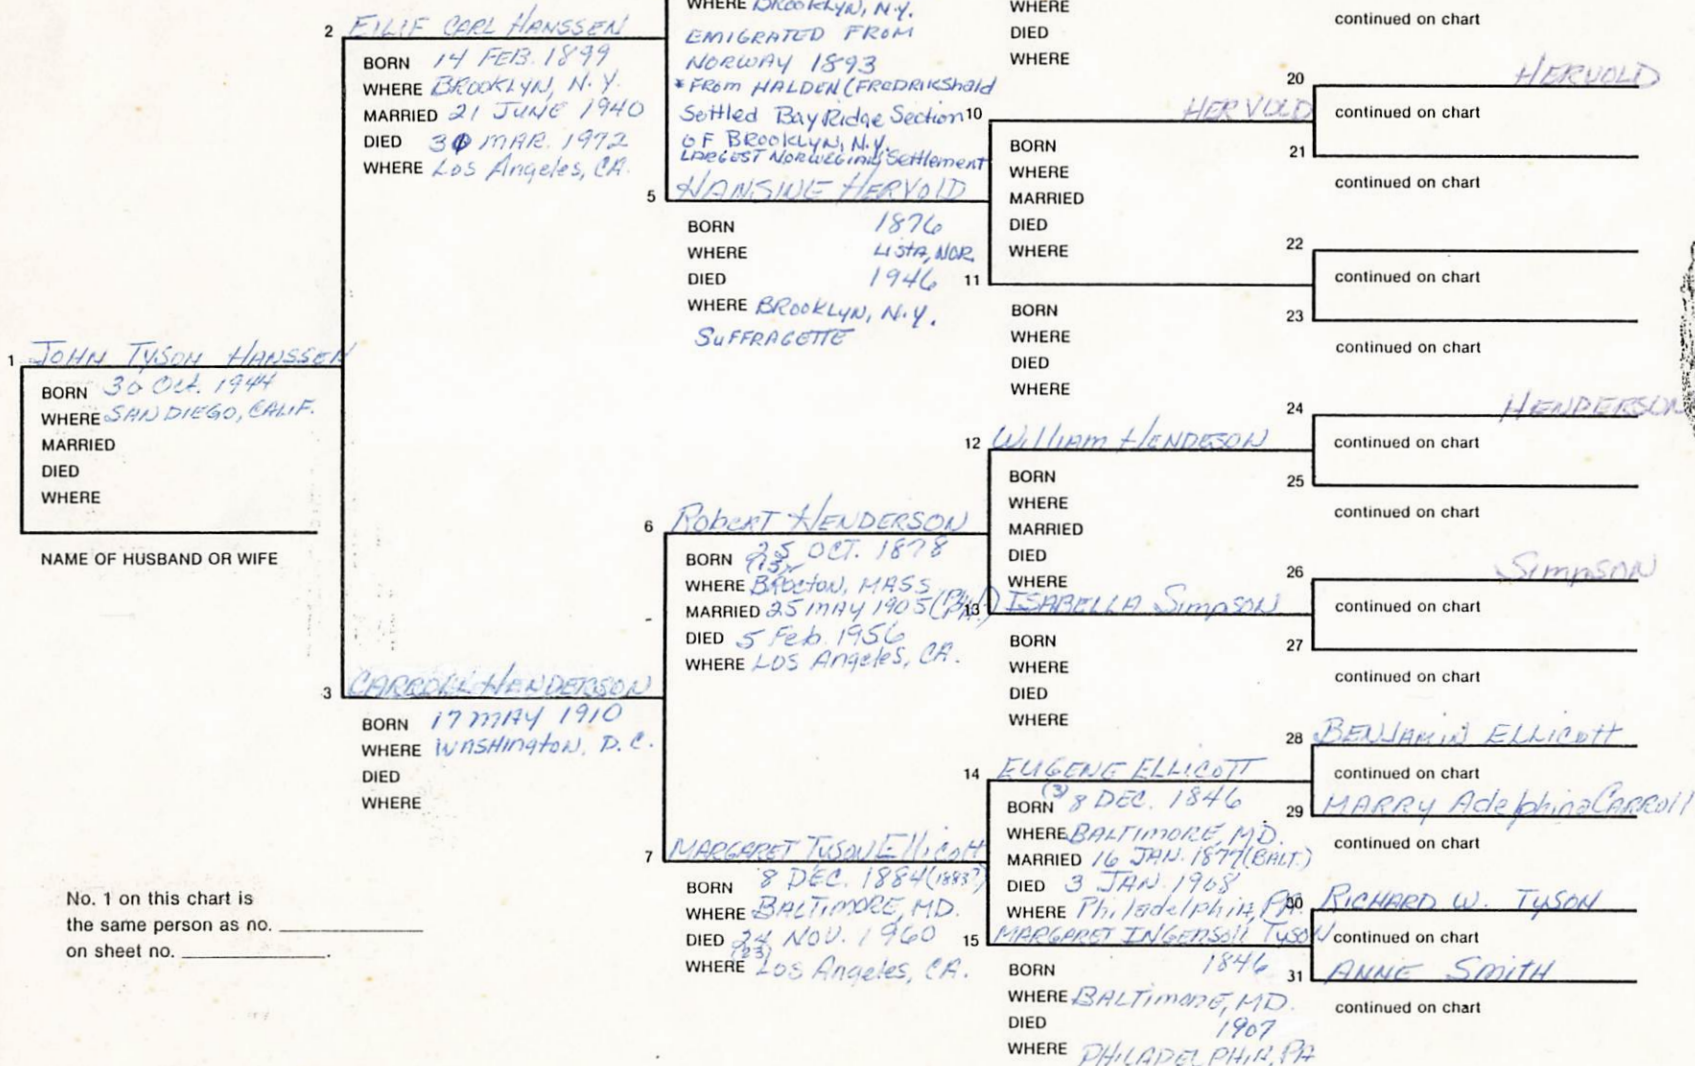 1 JOHN TYSON HANSSEN
BORN 30 Oct. 1944
WHERE SAN DIEGO, CALIF.
MARRIED
DIED
WHERE
NAME OF HUSBAND OR WIFE
No. 1 on this chart is
the same person as no.
on sheet no. .
2 EILIF CARL HANSSEN
BORN 14 FEB. 1899
WHERE BROOKLYN, N.Y.
MARRIED 21 JUNE 1940
DIED 30 MAR. 1972
WHERE Los Angeles, CA.
3 CARROLL HENDERSON
BORN 17 MAY 1910
WHERE WASHINGTON, D.C.
DIED
WHERE
WHERE BROOKLYN, N.Y.
EMIGRATED FROM
NORWAY 1893
*FROM HALDEN (FREDRIKShald
Settled Bay Ridge Section
OF BROOKLYN, N.Y.
LARGEST NORWEGIAN Settlement
5 HANSINE HERVOLD
BORN 1876
WHERE LISTA, NOR.
DIED 1946
WHERE BROOKLYN, N.Y.
SUFFRAGETTE
6 Robert HENDERSON
BORN 25 OCT. 1878
WHERE BROCTON, MASS
MARRIED 25 MAY 1905
DIED 5 Feb. 1956
WHERE LOS Angeles, CA.
7 MARGARET TYSON Ellicott
BORN 8 DEC. 1884 (1883?)
WHERE BALTIMORE, MD.
DIED 24 NOV. 1960
(23)
WHERE Los Angeles, CA.
WHERE
DIED
WHERE
10 HERVOLD
BORN
WHERE
MARRIED
DIED
WHERE
11
BORN
WHERE
DIED
WHERE
12 William HENDESON
BORN
WHERE
MARRIED
DIED
WHERE
13 ISABELLA Simpson
BORN
WHERE
DIED
WHERE
14 EUGENE ELLICOTT
(3)
BORN 8 DEC. 1846
WHERE BALTIMORE, MD.
MARRIED 16 JAN. 1877 (BALT.)
DIED 3 JAN. 1968
WHERE Philadelphia, PA.
15 MARGARET INGERSOll TYSON
BORN 1846
WHERE BALTIMORE, MD.
DIED 1907
WHERE PHILADELPHIA, PA
continued on chart
20 HERVOLD
continued on chart
21
continued on chart
22
continued on chart
23
continued on chart
24 HENDERSON
continued on chart
25
continued on chart
26 SIMPSON
continued on chart
27
continued on chart
28 BENJAMIN ELLICOTT
continued on chart
29 MARRY Adelphina CARROll
continued on chart
30 RICHARD W. TYSON
continued on chart
31 ANNE SMITH
continued on chart